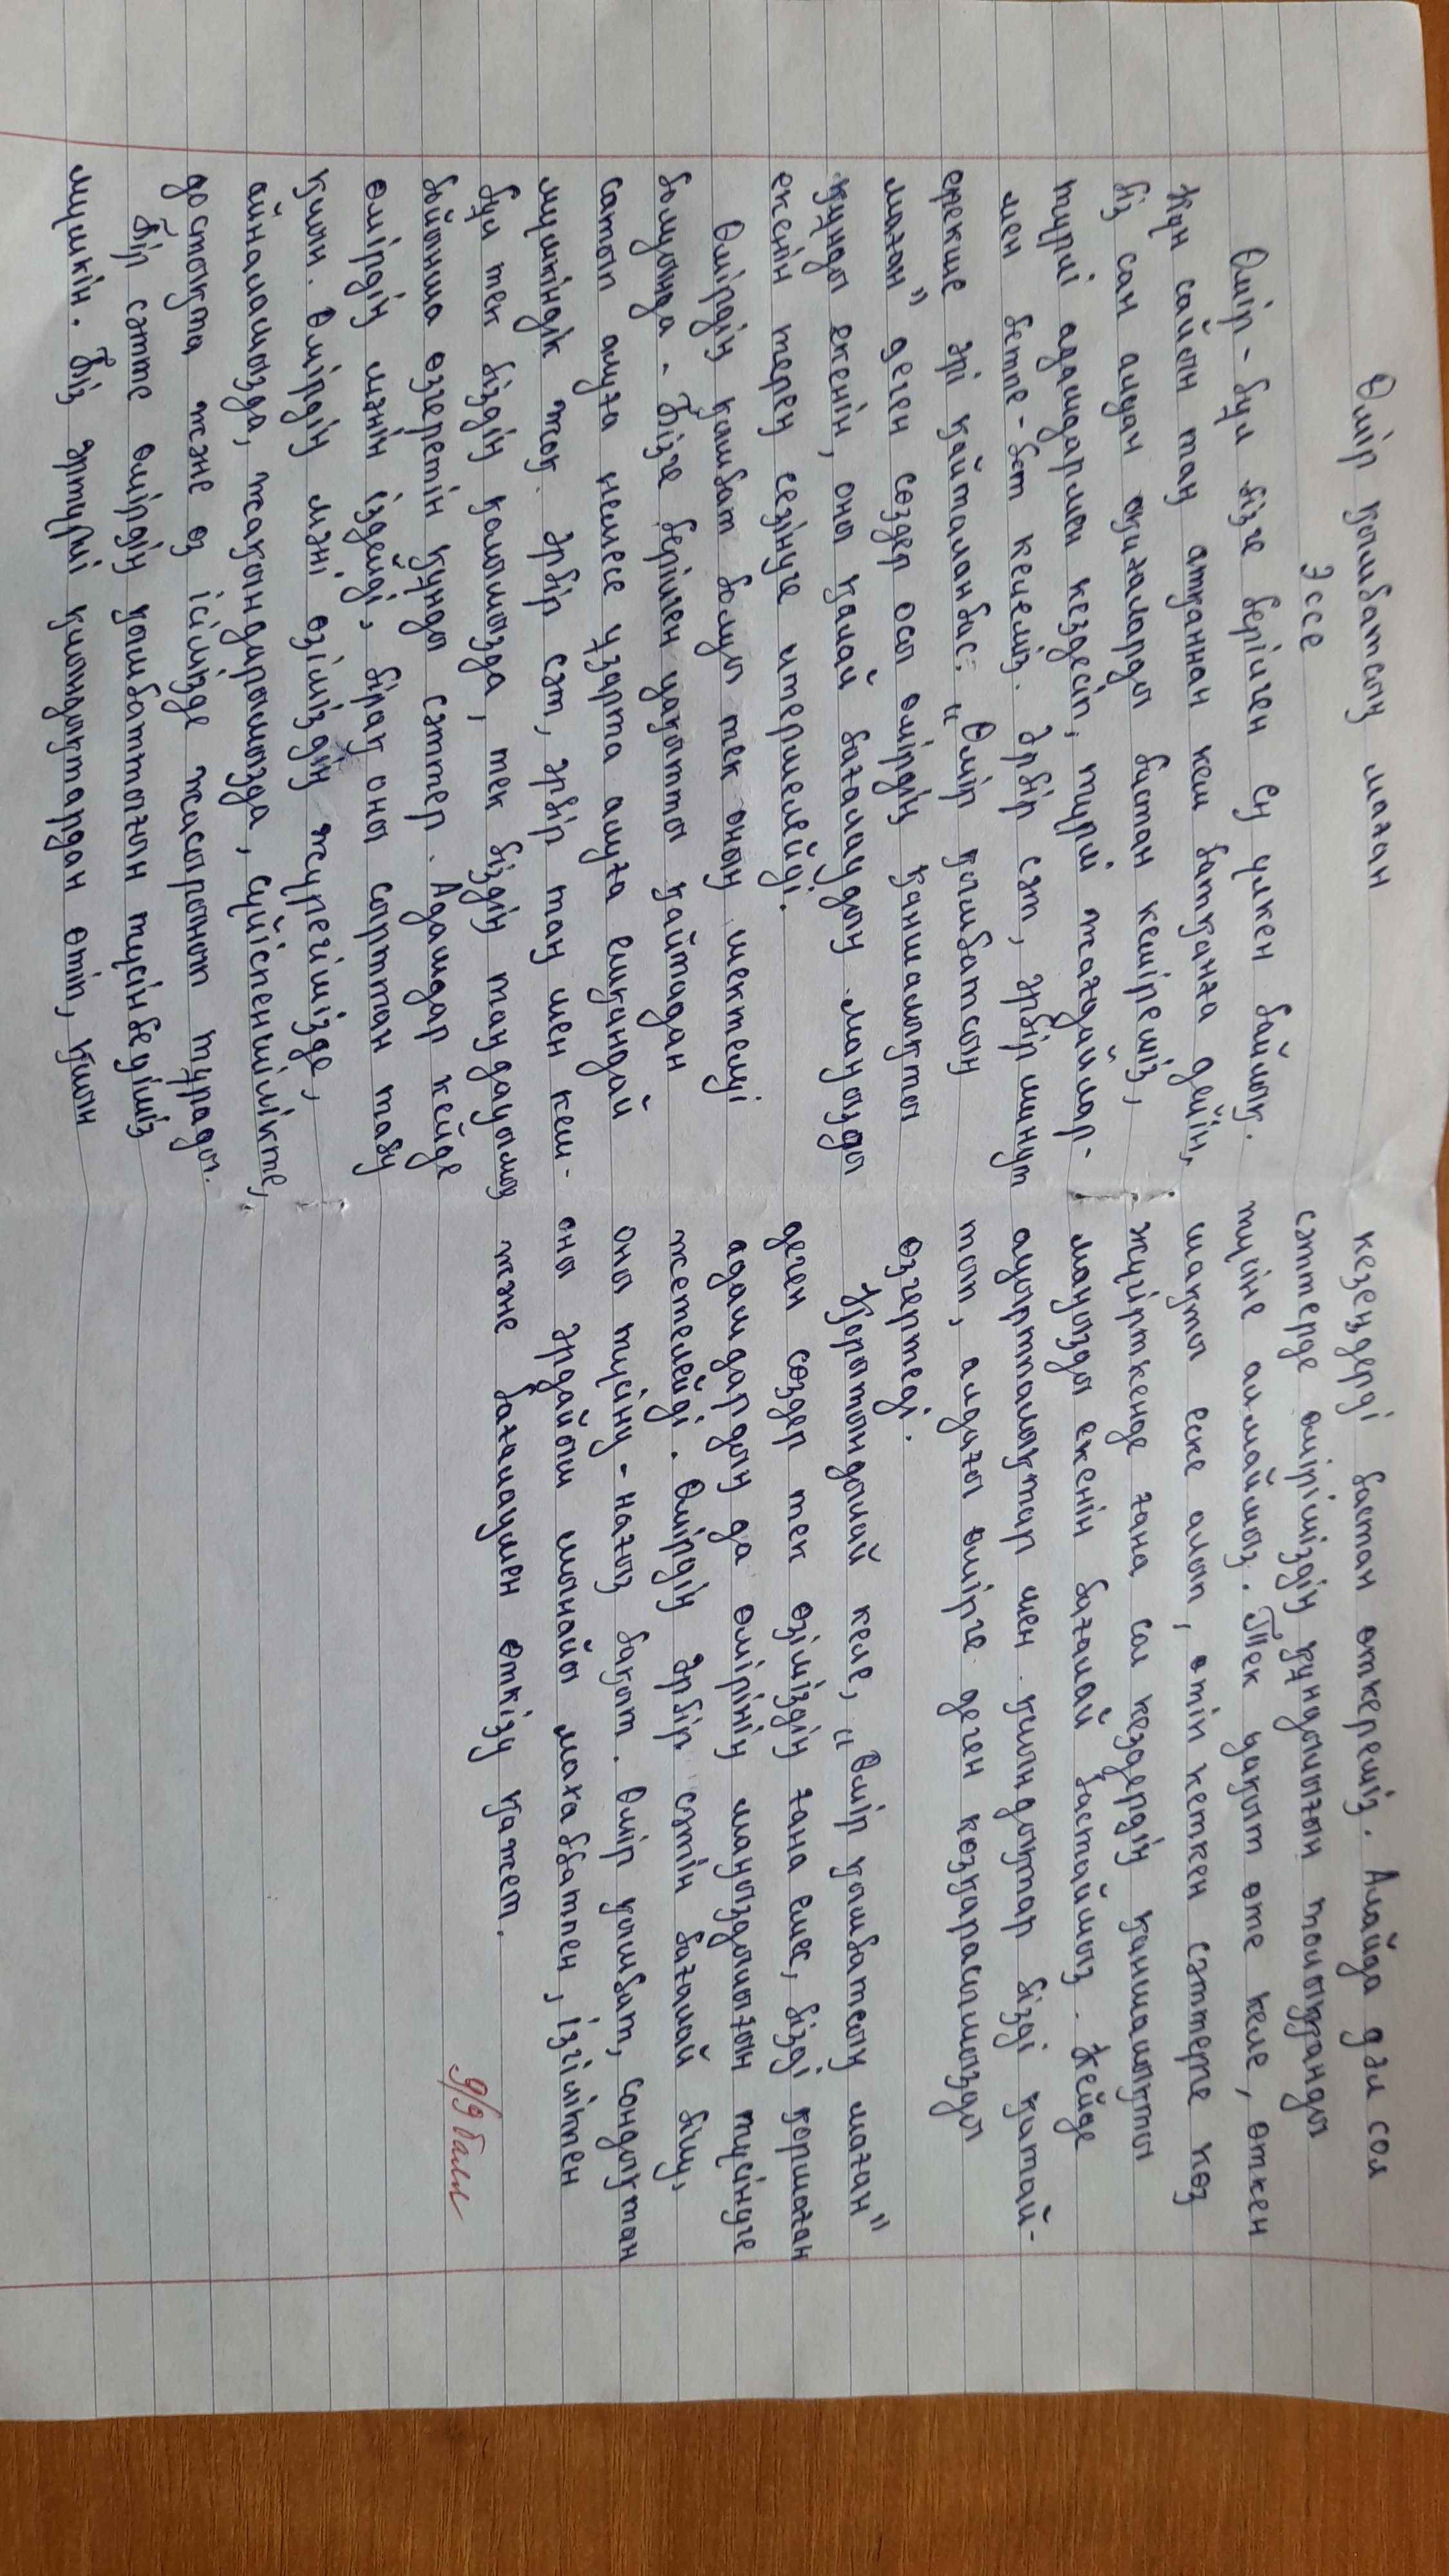 Өмір қымбатсың маған
Эссе
Өмір - бұл бізге берілген ең үлкен байлық.
Күн сайын таң атқаннан кеш батқанға дейін,
біз сан алуан оқиғаларды бастан кешіреміз,
түрлі адамдармен кездесіп, түрлі жағдайлар-
мен бетпе-бет келеміз. Әрбір сәт, әрбір минут
ерекше әрі қайталанбас. "Өмір қымбатсың
маған" деген сөздер осы өмірдің қаншалықты
құнды екенін, оны қалай бағалаудың маңызды
екенін терең сезінуге итермелейді.
Өмірдің қымбат болуы тек оның шектеулі
болуында. Бізге берілген уақытты қайтадан
сатып алуға немесе ұзарта алуға ешқандай
мүмкіндік жоқ. Әрбір сәт, әрбір таң мен кеш -
бұл тек біздің қолымызда, тек біздің таңдауымыз
бойынша өзгеретін құнды сәттер. Адамдар кейде
өмірдің мәнін іздейді, бірақ оны сырттан табу
қиын. Өмірдің мәні өзіміздің жүрегімізде,
айналамызда, жақындарымызда, сүйіспеншілікте,
достықта және өз ісімізде жасырынып тұрады.
Бір сәтте өмірдің қымбаттығын түсінбедіміз
мүмкін. Біз әртүрлі қиындықтардан өтіп, қиын
кезеңдерді бастан өткереміз. Алайда дәл сол
сәттерде өміріміздің құндылығын толыққанды
түсіне алмаймыз. Тек уақыт өте келе, өткен
шақты еске алып, өтіп кеткен сәттерге көз
жүгірткенде ғана сол кездердің қаншалықты
маңызды екенін бағалай бастаймыз. Кейде
ауыртпалықтар мен қиындықтар бізді қатай-
тып, алдағы өмірге деген көзқарасымызды
өзгертеді.
Қорытындылай келе, "Өмір қымбатсың маған"
деген сөздер тек өзіміздің ғана емес, бізді қоршаған
адамдардың да өмірінің маңыздылығын түсінуге
жетелейді. Өмірдің әрбір сәтін бағалай білу,
оны түсіну - нағыз бақыт. Өмір қымбат, сондықтан
оны әрдайым шынайы махаббатпен, ізгілікпен
және бағалаумен өткізу қажет.
9/9 балл